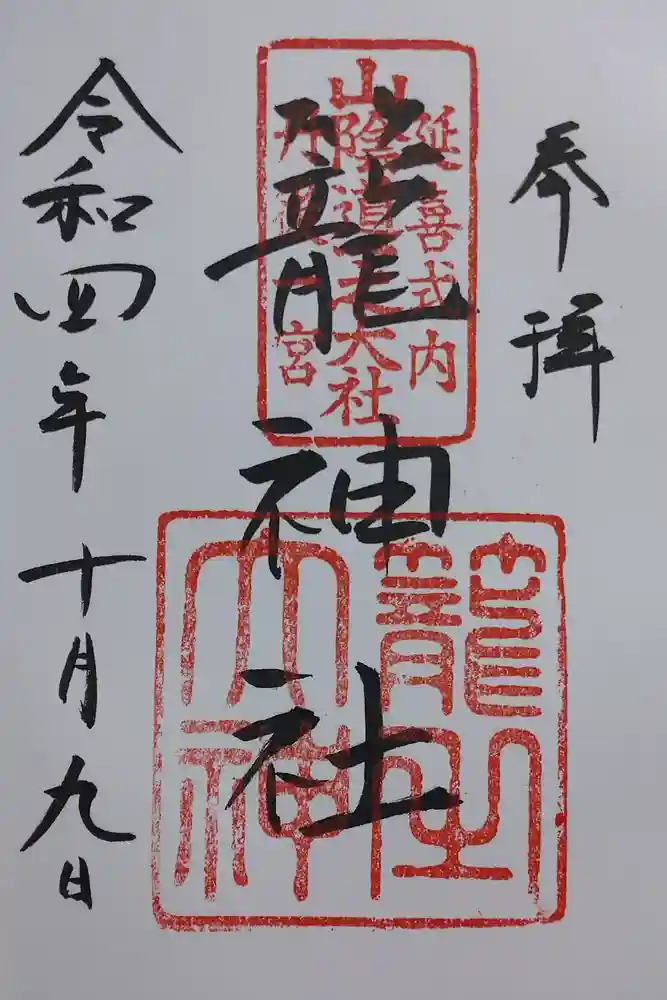 奉拝
延喜式内
山陰道一之大社
丹後一宮
籠神社
籠之
大神
令和四年十月九日